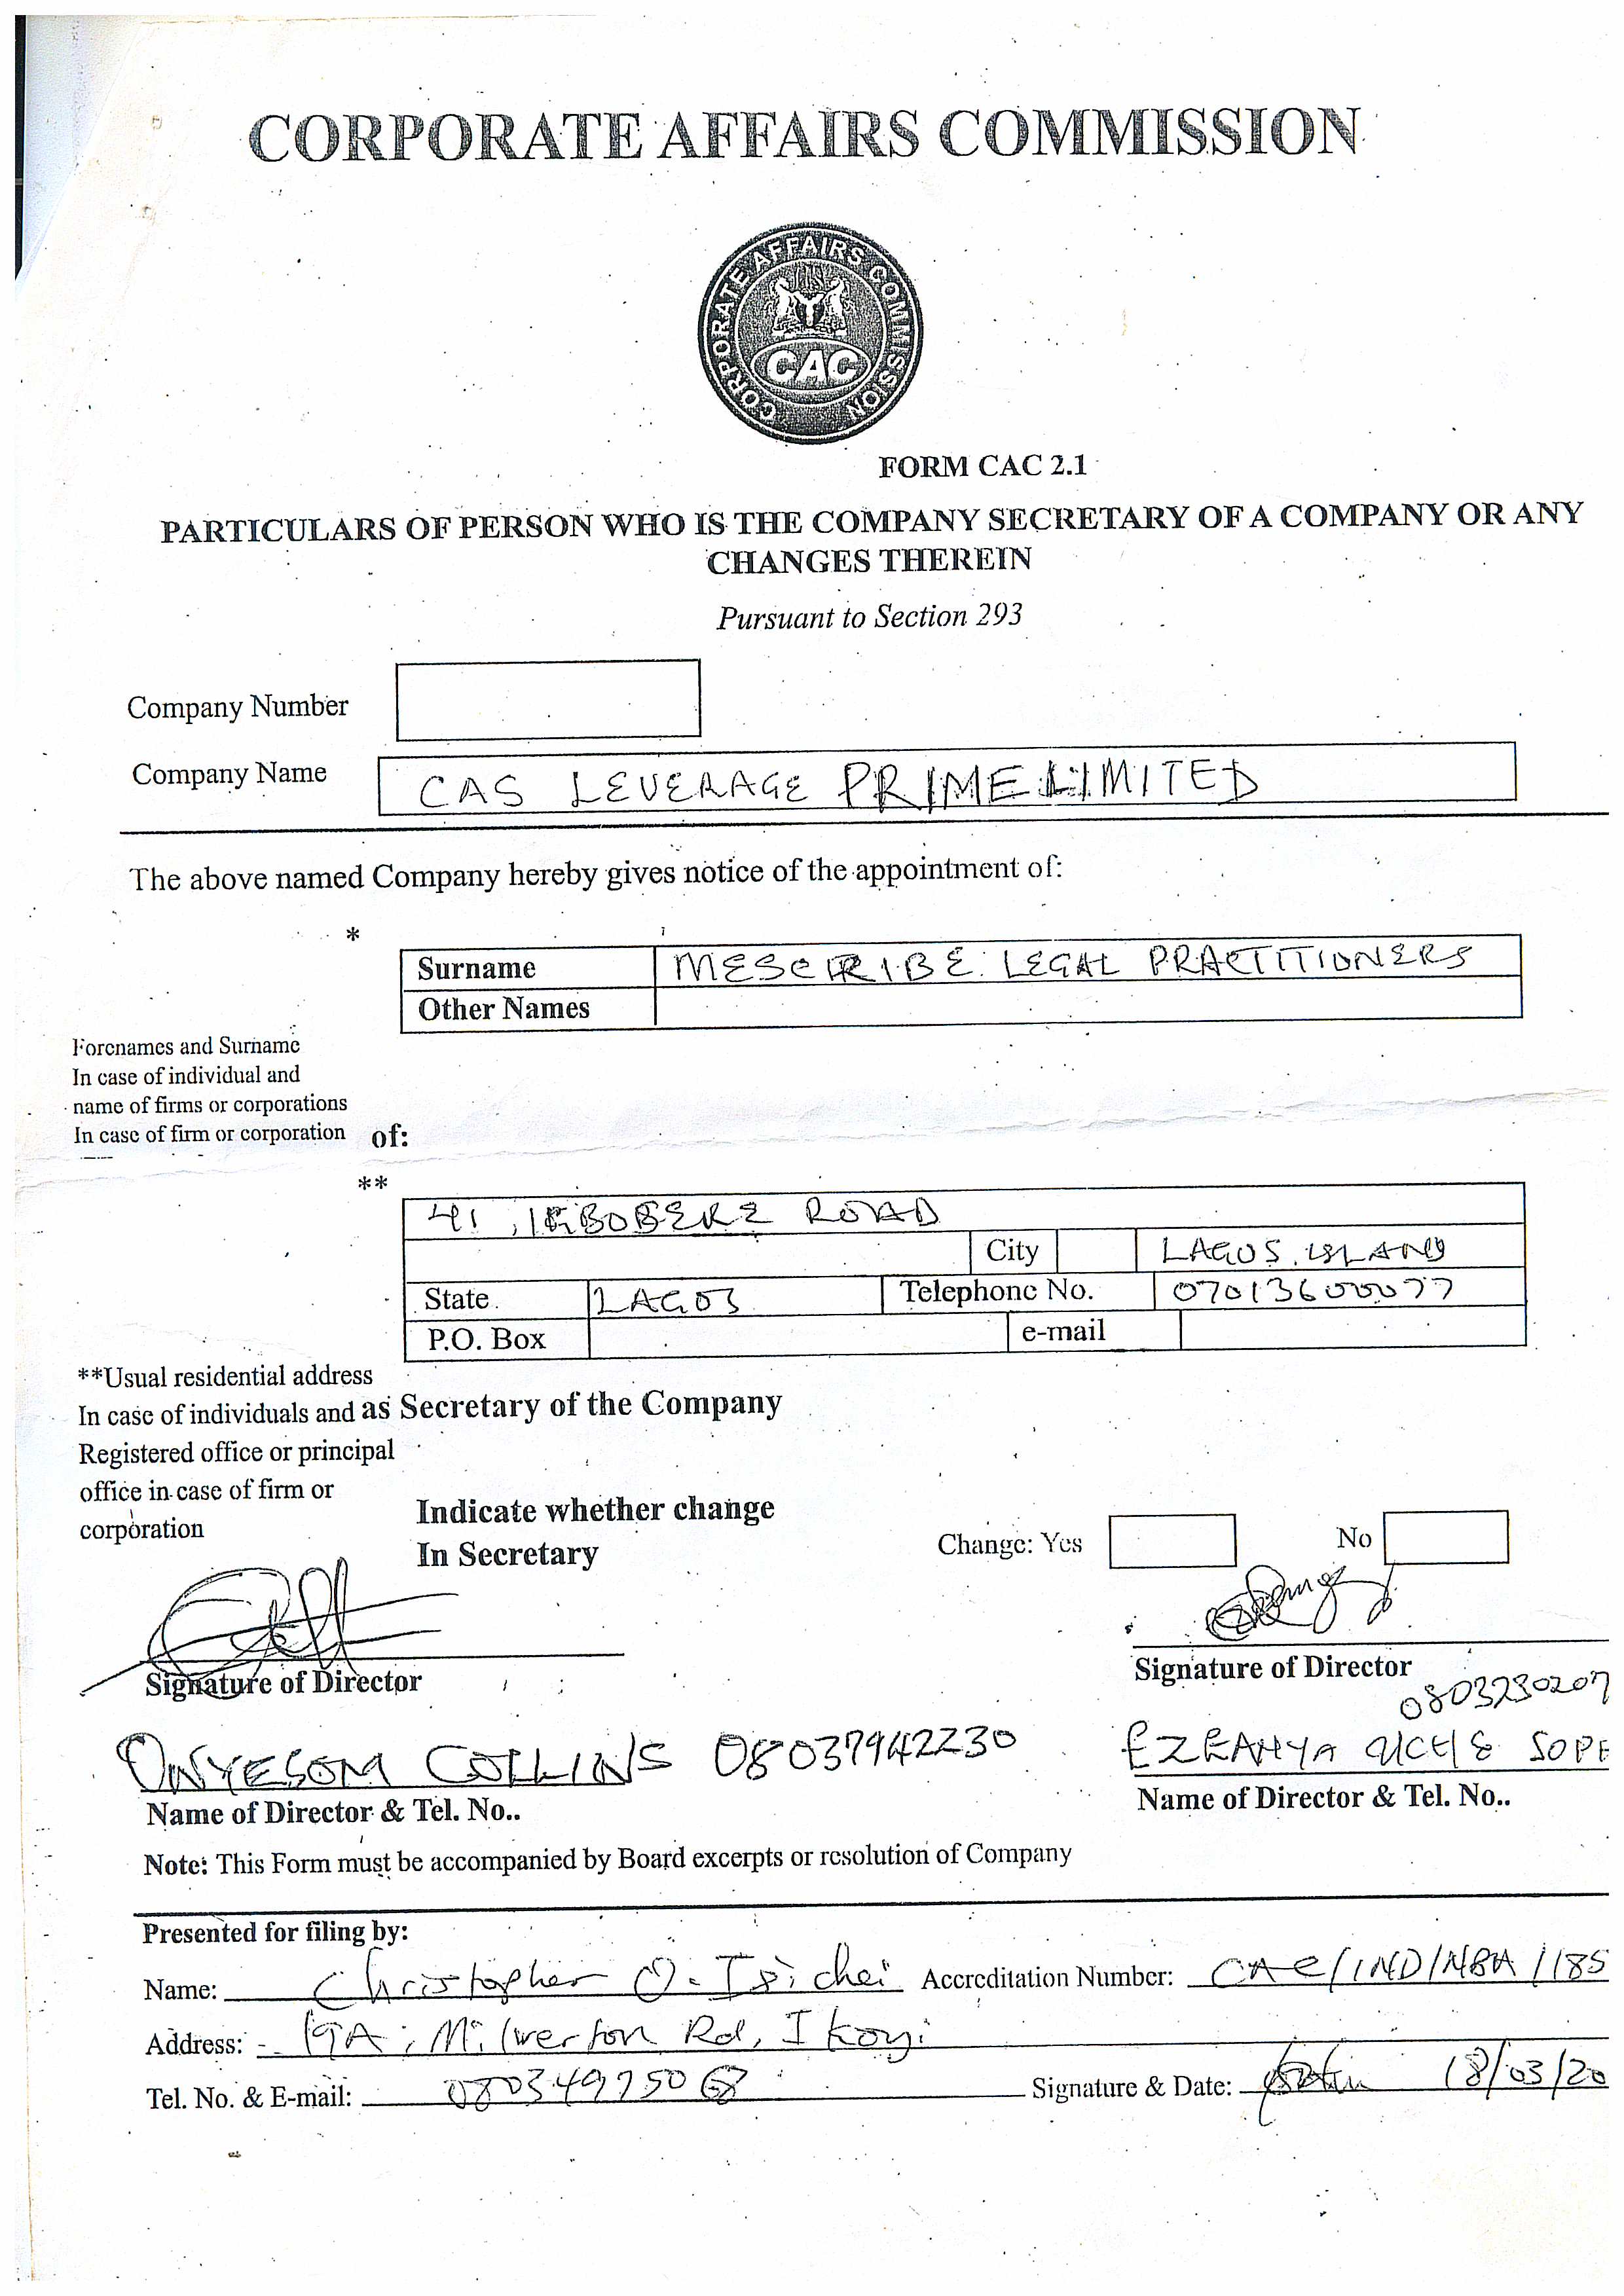 CORPORATE AFFAIRS COMMISSION
CORPORATE AFFAIRS COMMISSION
CAC
FORM CAC 2.1
PARTICULARS OF PERSON WHO IS THE COMPANY SECRETARY OF A COMPANY OR ANY
CHANGES THEREIN
Pursuant to Section 293
Company Number
Company Name CAS LEVERAGE PRIME LIMITED
The above named Company hereby gives notice of the appointment of:
*
Surname MESCRIBE LEGAL PRACTITIONERS
Other Names
Forenames and Surname
In case of individual and
name of firms or corporations
In case of firm or corporation of:
**
41, IGBOBERE ROAD
City LAGOS ISLAND
State LAGOS Telephone No. 07013600077
P.O. Box e-mail
**Usual residential address
In case of individuals and as Secretary of the Company
Registered office or principal
office in case of firm or
corporation
Indicate whether change
In Secretary
Change: Yes No
Signature of Director Signature of Director
0803230207
ONYESOM COLLINS 08037942230 EZEANYA UCHE SOPE
Name of Director & Tel. No.. Name of Director & Tel. No..
Note: This Form must be accompanied by Board excerpts or resolution of Company
Presented for filing by:
Name: Christopher O. Isichei Accreditation Number: CAC/IND/NBA/1185
Address: 19A, Milverton Rd, Ikoyi
Tel. No. & E-mail: 08034975068 Signature & Date: 18/03/20